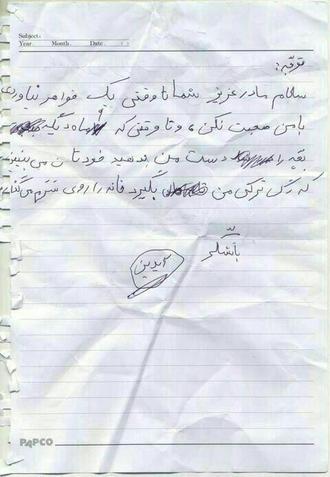 Subject:
Year. Month. Date.
توجه:
سلام مادر عزیز شما تا وقتی یک خواهر نیاوری
با من صحبت نکن، و تا وقتی که دیگه
دست من بدهید خودتان می بینید
که رگ ترکی من بگیرد خانه را روی سرم
باتشکر
آیدین
PAPCO